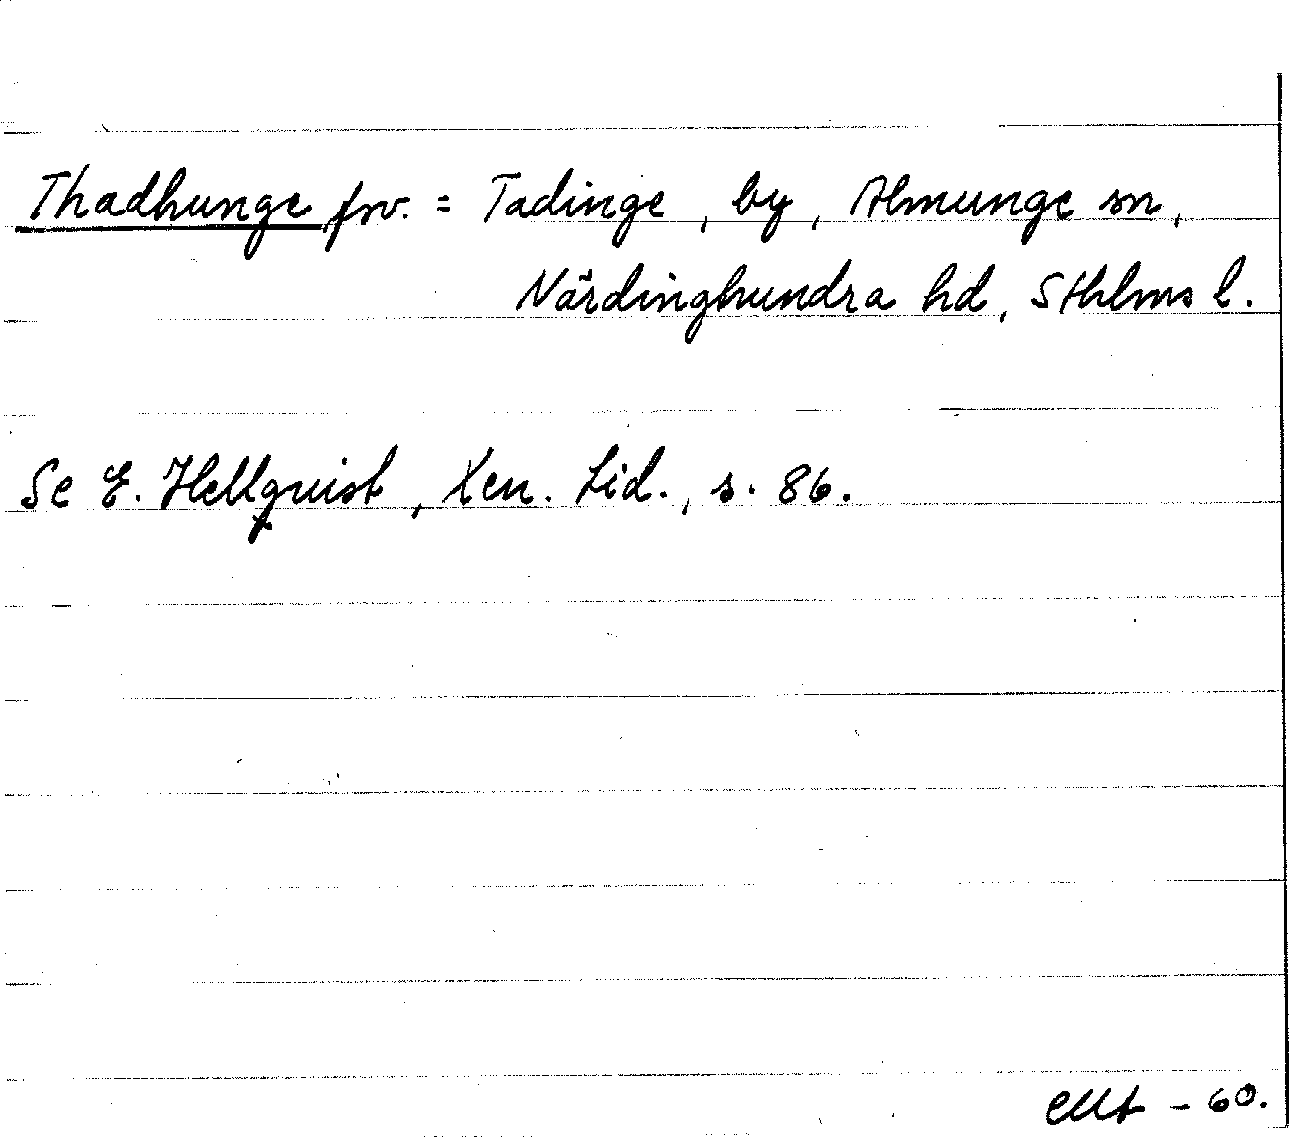 Thadhunge fsv. = Tadinge, by, Almunge sn,
Närdinghundra hd, Sthlms l.
Se E. Hellquist, Xen. Lid., s. 86.
- 60.